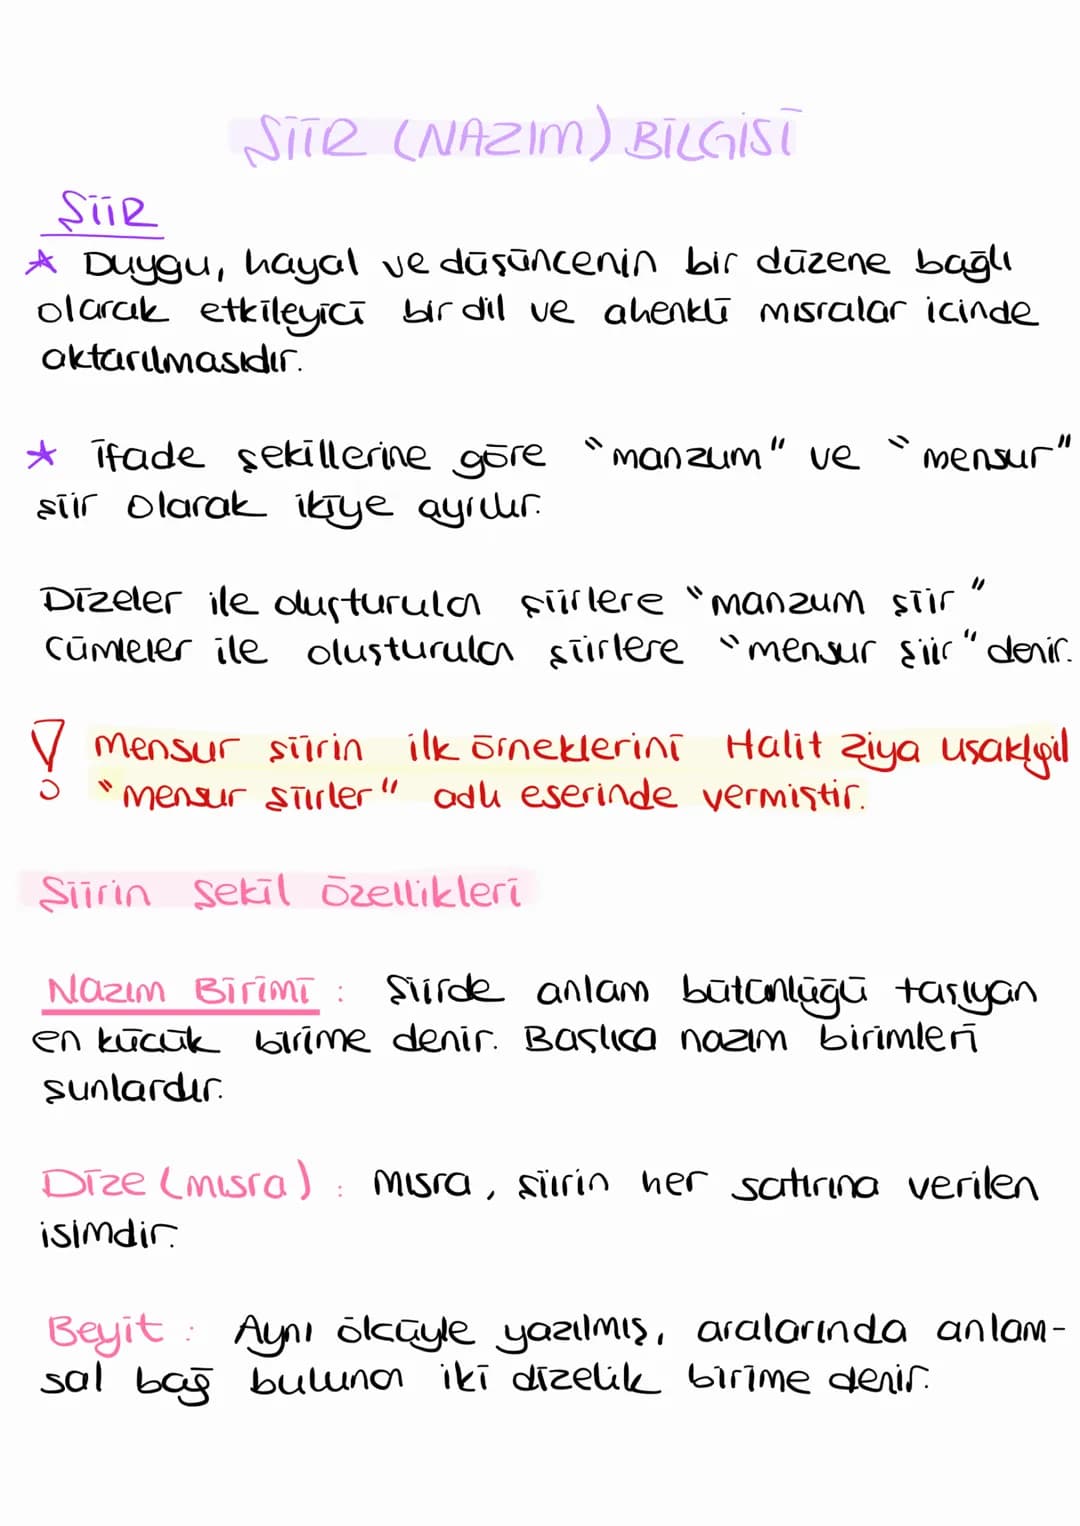 ŞİİR (NAZIM) BİLGİSİ
ŞİİR
★ Duygu, hayal ve düşüncenin bir düzene bağlı
olarak etkileyici bir dil ve ahenkli mısralar içinde
aktarılmasıdır.
★ ifade şekillerine göre "manzum" ve "mensur"
şiir olarak ikiye ayrılır.
Dizeler ile oluşturulan şiirlere "manzum şiir"
Cümleler ile oluşturulan şiirlere "mensur şiir" denir.
! Mensur şiirin ilk örneklerini Halit Ziya Uşaklıgil
"mensur şiirler" adlı eserinde vermiştir.
Şiirin Şekil Özellikleri
Nazım Birimi : Şiirde anlam bütünlüğü taşıyan
en küçük birime denir. Başlıca nazım birimleri
şunlardır.
Dize (mısra) : mısra, şiirin her satırına verilen
isimdir.
Beyit : Aynı ölçüyle yazılmış, aralarında anlam-
sal bağ bulunan iki dizelik birime denir.